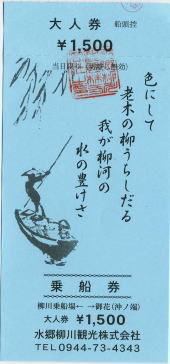 大人券 船頭控
¥1,500
当日限り
色にして
老木の柳うちしだる
我が柳河の
水の豊けさ
乗船券
柳川乗船場←→御花(沖ノ端)
大人券 ¥1,500
水郷柳川観光株式会社
TEL0944-73-4343